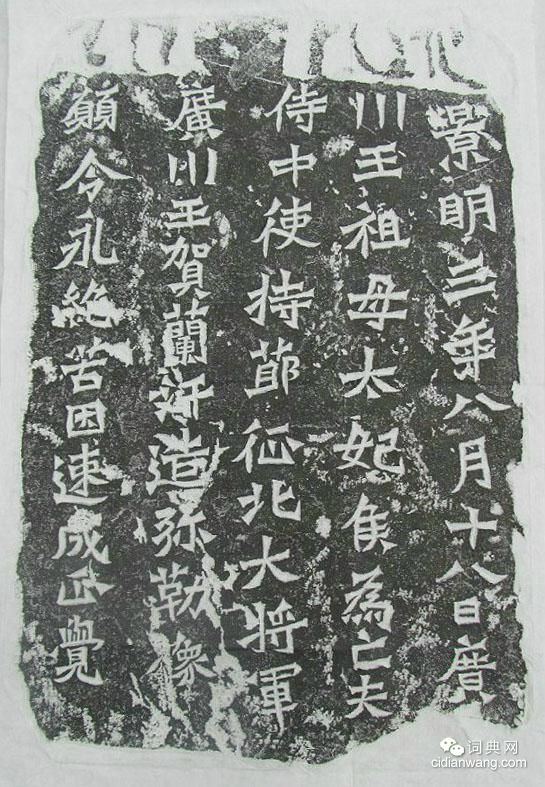 景明三年八月十八日廣
川王祖母太妃侯為亡夫
侍中使持莭征北大將軍
廣川王賀蘭汗造弥勒像
願令永絶苦因速成正覺
词典网
cidianwang.com